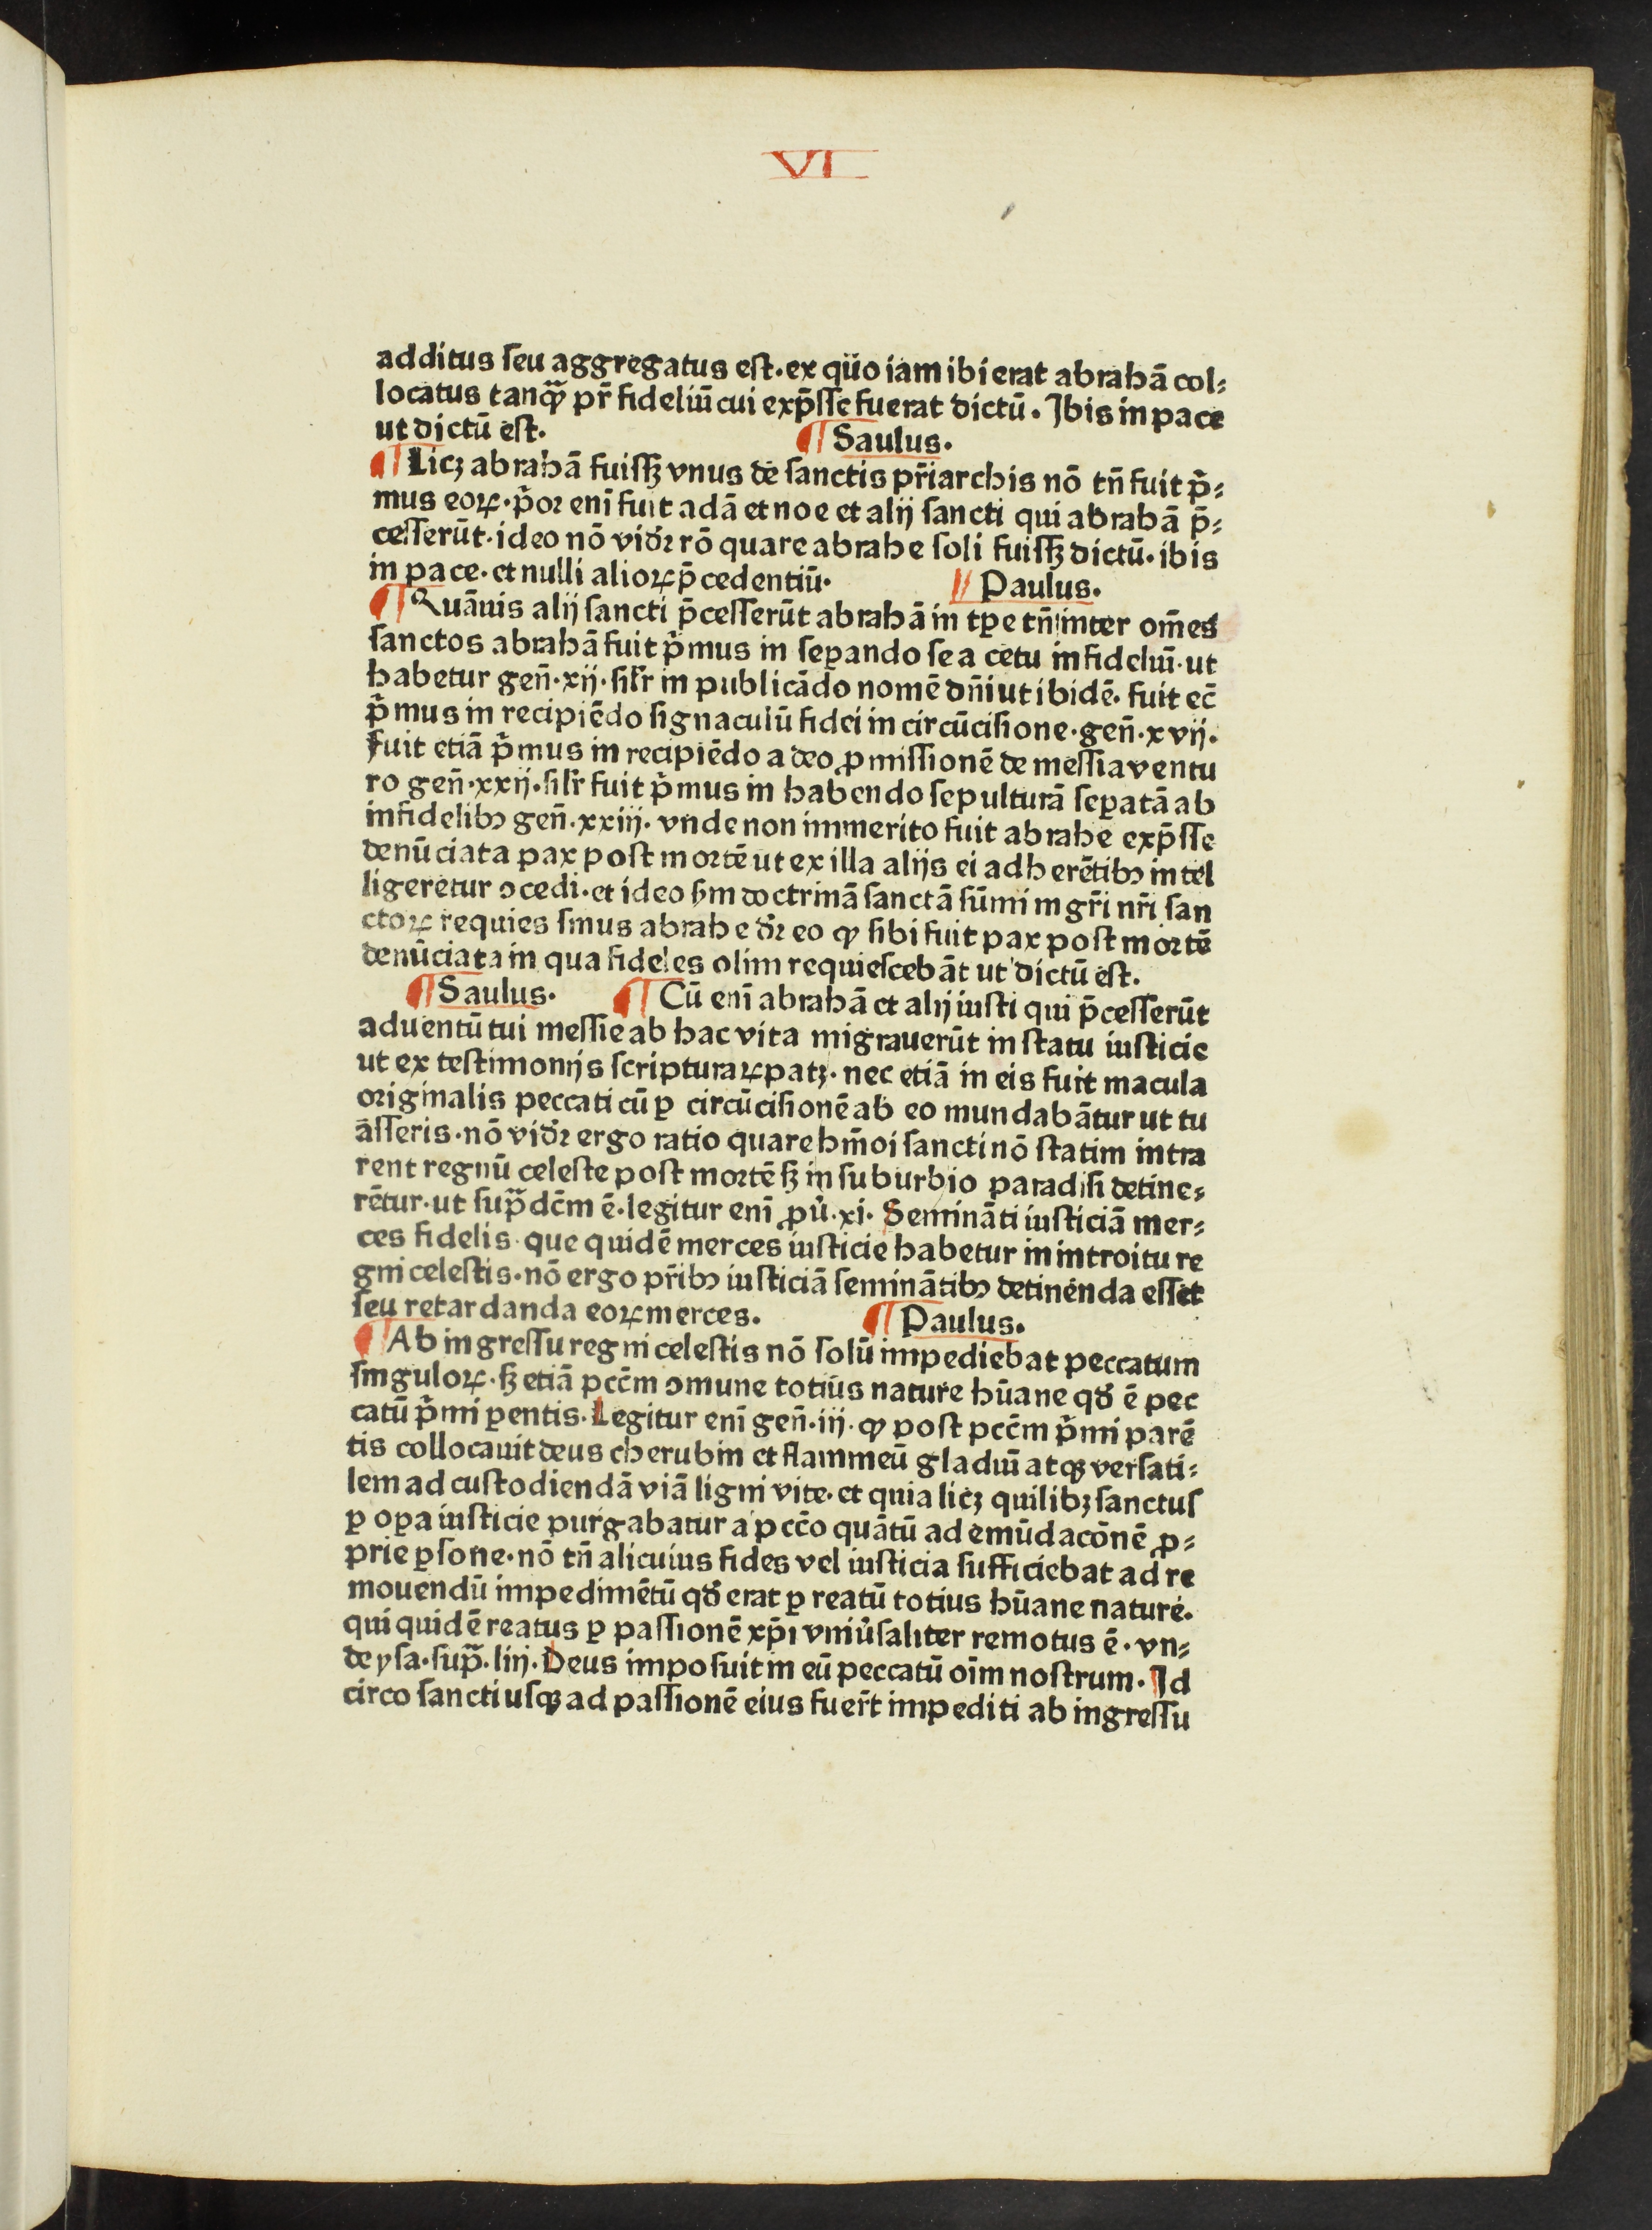 VI
additus seu aggregatus est. ex quo iam ibi erat abrahā col⸗
locatus tanꝙ̃ pr̄ fideliū cui exp̄sse fuerat dictū. Ibis in pace
ut dictū est. ¶ Saulus.
¶ Licꝫ abrahā fuissꝫ vnus de sanctis pr̄iarchis nō tn̄ fuit p̓⸗
mus eoꝝ. p̓or enī fuit adā et noe et alij sancti qui abrahā p̄⸗
cesserūt. ideo nō vidr̄ rō quare abrahe soli fuissꝫ dictū. ibis
in pace. et nulli alioꝝ p̄cedentiū. ¶ Paulus.
¶ Quāuis alij sancti p̄cesserūt abrahā in tꝑe tn̄ inter om̄es
sanctos abrahā fuit p̓mus in seꝑando se a cetu infideliū. ut
habetur gen̄. xij. silr̄ in publicādo nomē dn̄i ut ibidē. fuit ec̄
p̓mus in recipiēdo signaculū fidei in circūcisione. gen̄. xvij.
fuit etiā p̓mus in recipiēdo a deo ꝓmissionē de messia ventu
ro gen̄. xxij. silr̄ fuit p̓mus in habendo sepulturā seꝑatā ab
infidelibꝰ gen̄. xxiij. vnde non immerito fuit abrahe exp̄sse
denūciata pax post mortē ut ex illa alijs ei adherētibꝰ intel
ligeretur ꝯcedi. et ideo ẜm doctrinā sanctā sūmi mgr̄i nr̄i san
ctoꝝ requies sinus abrahe dr̄ eo ꝙ sibi fuit pax post mortē
denūciata in qua fideles olim requiescebāt ut dictū est.
¶ Saulus. ¶ Cū enī abrahā et alij iusti qui p̄cesserūt
aduentū tui messie ab hac vita migrauerūt in statu iusticie
ut ex testimonijs scripturaꝝ patꝫ. nec etiā in eis fuit macula
originalis peccati cū ꝑ circūcisionē ab eo mundabātur ut tu
asseris. nō vidr̄ ergo ratio quare hm̄oi sancti nō statim intra
rent regnū celeste post mortē sꝫ in suburbio paradisi detine⸗
rētur. ut sup̃dc̄m ē. legitur enī ꝓu̓. xi. Semināti iusticiā mer⸗
ces fidelis. que quidē merces iusticie habetur in introitu re
gni celestis. nō ergo pr̄ibꝰ iusticiā semināntibꝰ detinenda esset
seu retardanda eoꝝ merces. ¶ Paulus.
¶ Ab ingressu regni celestis nō solū impediebat peccatum
singuloꝝ. sꝫ etiā pcc̄m ꝯmune totius nature hūane qd̓ ē pec
catū p̓mi ꝑentis. Legitur enī gen̄. iij. ꝙ post pcc̄m p̓mi parē
tis collocauit deus cherubin et flammeū gladiū atqꝫ versati⸗
lem ad custodiendā viā ligni vite. et quia licꝫ quilibꝫ sanctus
ꝑ oꝑa iusticie purgabatur a pcc̄o quātū ad emūdacōnē ꝓ⸗
prie ꝑsone. nō tn̄ alicuius fides vel iusticia sufficiebat ad re
mouendū impedimētū qd̓ erat ꝑ reatū totius hūane nature.
qui quidē reatus ꝑ passionē xp̄i vniu̓saliter remotus ē. vn⸗
de ysa. sup̃. liij. Deus imposuit in eū peccatū oīm nostrum. Id
circo sancti usqꝫ ad passionē eius fuer̄t impediti ab ingressu